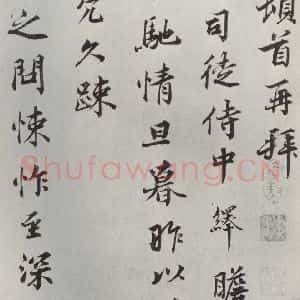 頓首再拜
司徒侍中 繹瞻
馳情旦暮昨以
冗久踈
之問悚怍至深
Shufawang.CN